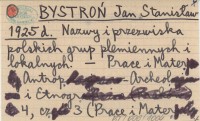 BYSTROŃ Jan Stanisław
1925 d. Nazwy i przezwiska
polskich grup plemiennych i
lokalnych. — Prace i Mater.
Antrop. Archeol.
i Etnogr.
4, cz. 3 (Prace i Mater.